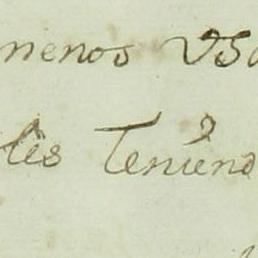 menos Usa
les Teniend